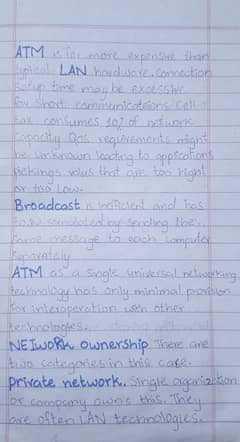 ATM is far more expensive than
typical LAN hardware. connection
setup time may be excessive
for short communications cell
tax consumes 10% of network
capacity QoS requirements might
be unknown leading to applications
values that are too high
or too low.
Broadcast is inefficient and has
to be simulated by sending the
same message to each computer
separately
ATM as a single universal networking
technology has only minimal provision
for interoperation with other
technologies.
NETWORK ownership There are
two categories in this case.
private network. Single organization
or company owns this. They
are often LAN technologies.